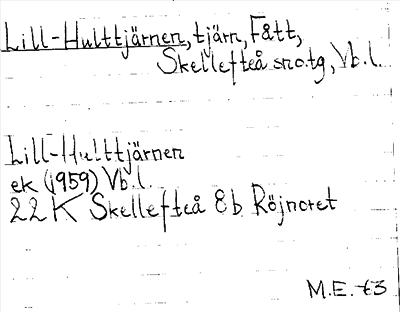 Lill-Hulttjärnen, tjärn, Fått,
Skellefteå sn o. tg, Vb. l.
Lill-Hulttjärnen
ek (1959) Vb. l.
22 K Skellefteå 8 b Röjnoret
M.E. 63